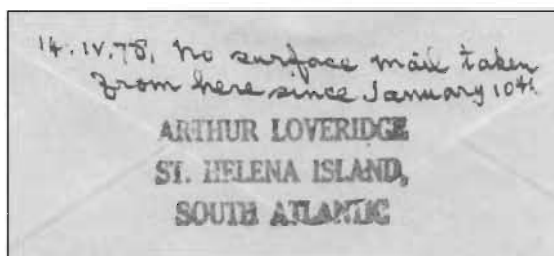 14.IV.78. No surface mail taken
from here since January 10th.
ARTHUR LOVERIDGE
ST. HELENA ISLAND,
SOUTH ATLANTIC